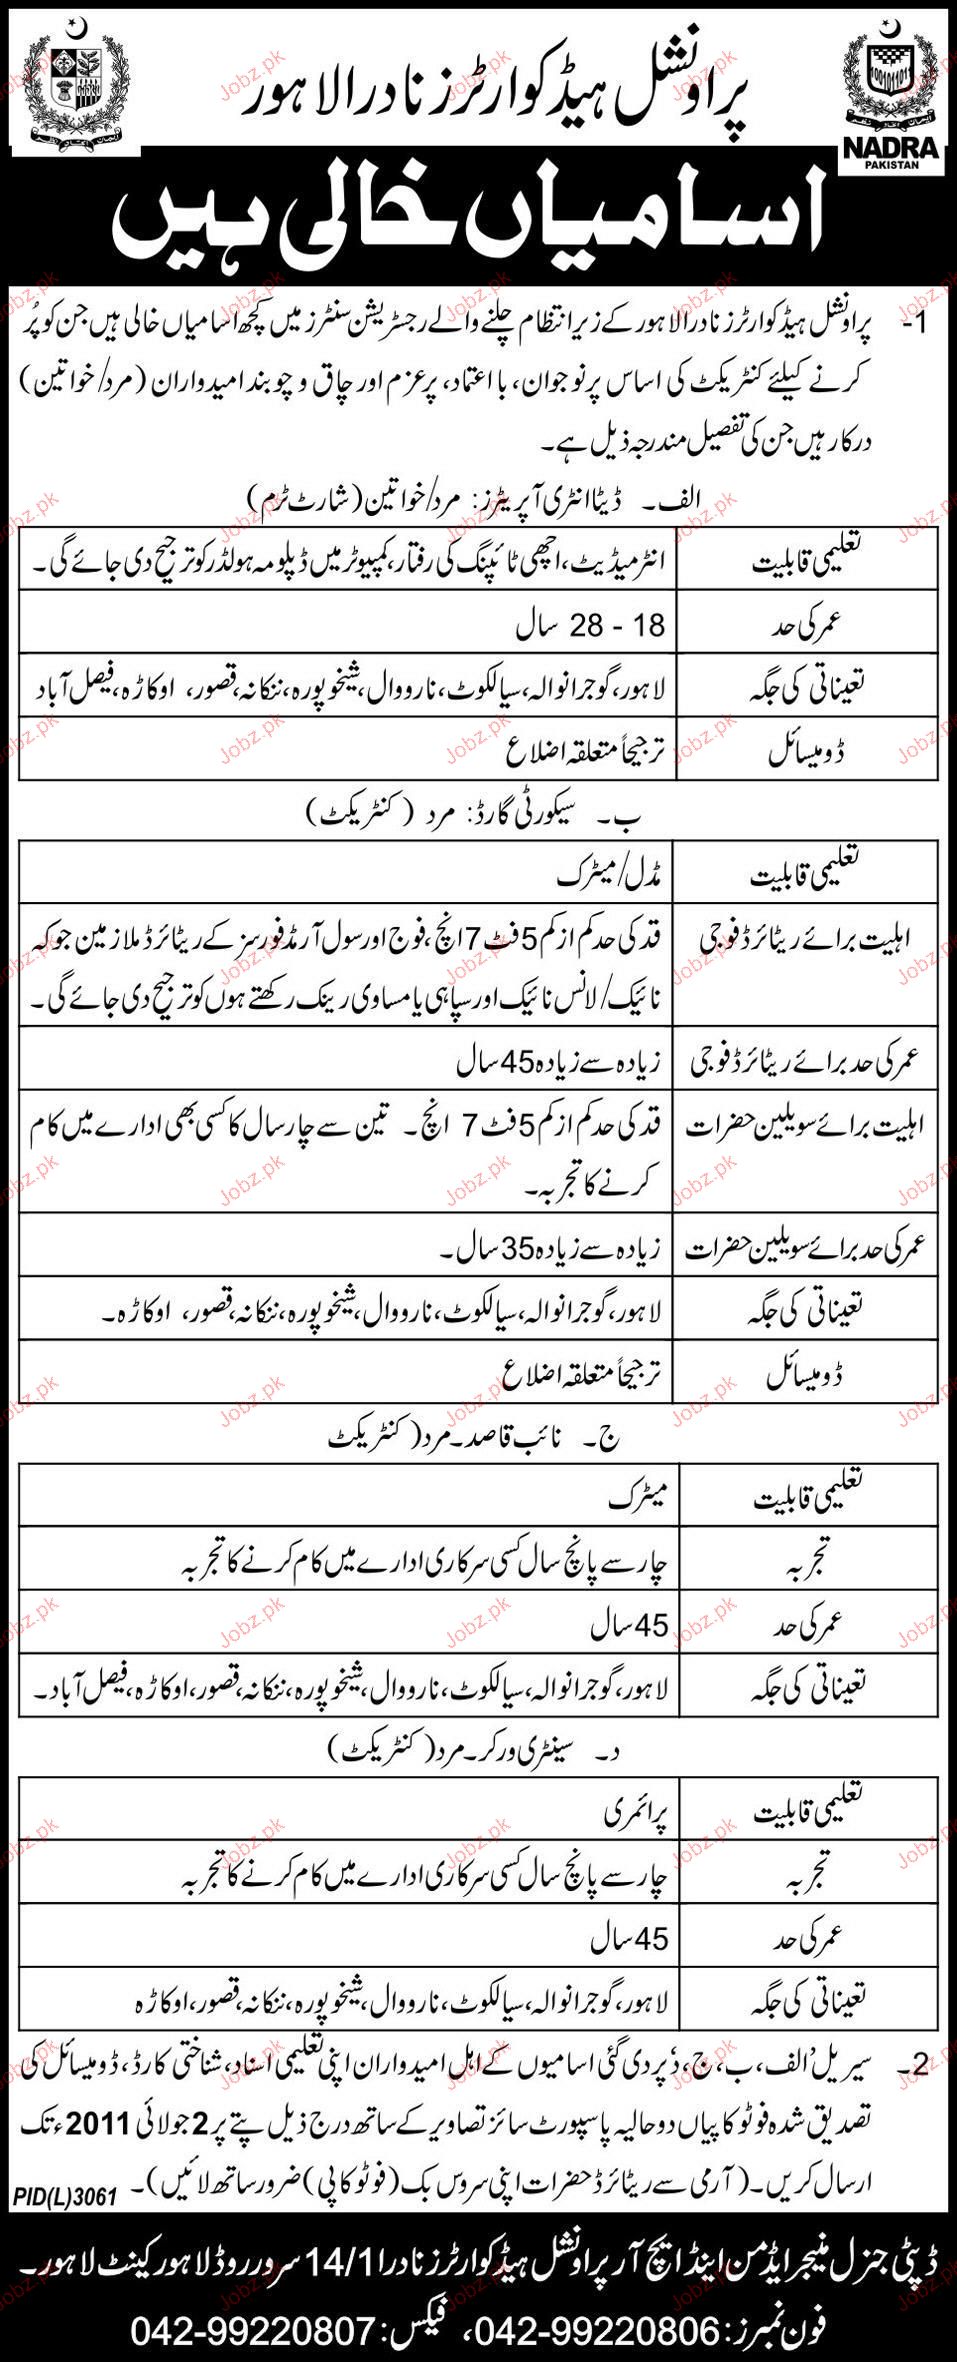 پراونشل ہیڈ کوارٹرز نادرا لاہور
NADRA
PAKISTAN
اسامیاں خالی ہیں
1- پراونشل ہیڈ کوارٹرز نادرا لاہور کے زیر انتظام چلنے والے رجسٹریشن سنٹرز میں کچھ اسامیاں خالی ہیں جن کو پُر
کرنے کیلئے کنٹریکٹ کی اساس پر نوجوان، با اعتماد، پرعزم اور چاق و چوبند امیدواران (مرد/خواتین)
درکار ہیں جن کی تفصیل مندرجہ ذیل ہے۔
الف۔ ڈیٹا انٹری آپریٹرز: مرد/خواتین (شارٹ ٹرم)
تعلیمی قابلیت انٹرمیڈیٹ، اچھی ٹائپنگ کی رفتار، کمپیوٹر میں ڈپلومہ ہولڈر کو ترجیح دی جائے گی۔
عمر کی حد 18 - 28 سال
تعیناتی کی جگہ لاہور، گوجرانوالہ، سیالکوٹ، نارووال، شیخوپورہ، ننکانہ، قصور، اوکاڑہ، فیصل آباد
ڈومیسائل ترجیحاً متعلقہ اضلاع
ب۔ سیکورٹی گارڈ: مرد (کنٹریکٹ)
تعلیمی قابلیت مڈل/میٹرک
اہلیت برائے ریٹائرڈ فوجی قد کی حد کم از کم 5 فٹ 7 انچ، فوج اور سول آرمڈ فورسز کے ریٹائرڈ ملازمین جو کہ
نائیک/لانس نائیک اور سپاہی یا مساوی رینک رکھتے ہوں کو ترجیح دی جائے گی۔
عمر کی حد برائے ریٹائرڈ فوجی زیادہ سے زیادہ 45 سال
اہلیت برائے سویلین حضرات قد کی حد کم از کم 5 فٹ 7 انچ۔ تین سے چار سال کا کسی بھی ادارے میں کام
کرنے کا تجربہ۔
عمر کی حد برائے سویلین حضرات زیادہ سے زیادہ 35 سال۔
تعیناتی کی جگہ لاہور، گوجرانوالہ، سیالکوٹ، نارووال، شیخوپورہ، ننکانہ، قصور، اوکاڑہ۔
ڈومیسائل ترجیحاً متعلقہ اضلاع
ج۔ نائب قاصد۔ مرد (کنٹریکٹ
تعلیمی قابلیت میٹرک
تجربہ چار سے پانچ سال کسی سرکاری ادارے میں کام کرنے کا تجربہ
عمر کی حد 45 سال
تعیناتی کی جگہ لاہور، گوجرانوالہ، سیالکوٹ، نارووال، شیخوپورہ، ننکانہ، قصور، اوکاڑہ، فیصل آباد۔
د۔ سینٹری ورکر۔ مرد (کنٹریکٹ)
تعلیمی قابلیت پرائمری
تجربہ چار سے پانچ سال کسی سرکاری ادارے میں کام کرنے کا تجربہ
عمر کی حد 45 سال
تعیناتی کی جگہ لاہور، گوجرانوالہ، سیالکوٹ، نارووال، شیخوپورہ، ننکانہ، قصور، اوکاڑہ
2۔ سیریل 'الف، ب، ج، د' پر دی گئی اسامیوں کے اہل امیدواران اپنی تعلیمی اسناد، شناختی کارڈ، ڈومیسائل کی
تصدیق شدہ فوٹو کاپیاں دو حالیہ پاسپورٹ سائز تصاویر کے ساتھ درج ذیل پتے پر 2 جولائی 2011ء تک
ارسال کریں۔ (آرمی سے ریٹائرڈ حضرات اپنی سروس بک (فوٹو کاپی) ضرور ساتھ لائیں)۔
PID(L)3061
ڈپٹی جنرل منیجر ایڈمن اینڈ ایچ آر پراونشل ہیڈ کوارٹرز نادرا 14/1 سرور روڈ لاہور کینٹ لاہور۔
فون نمبرز: 042-99220806، فیکس: 042-99220807